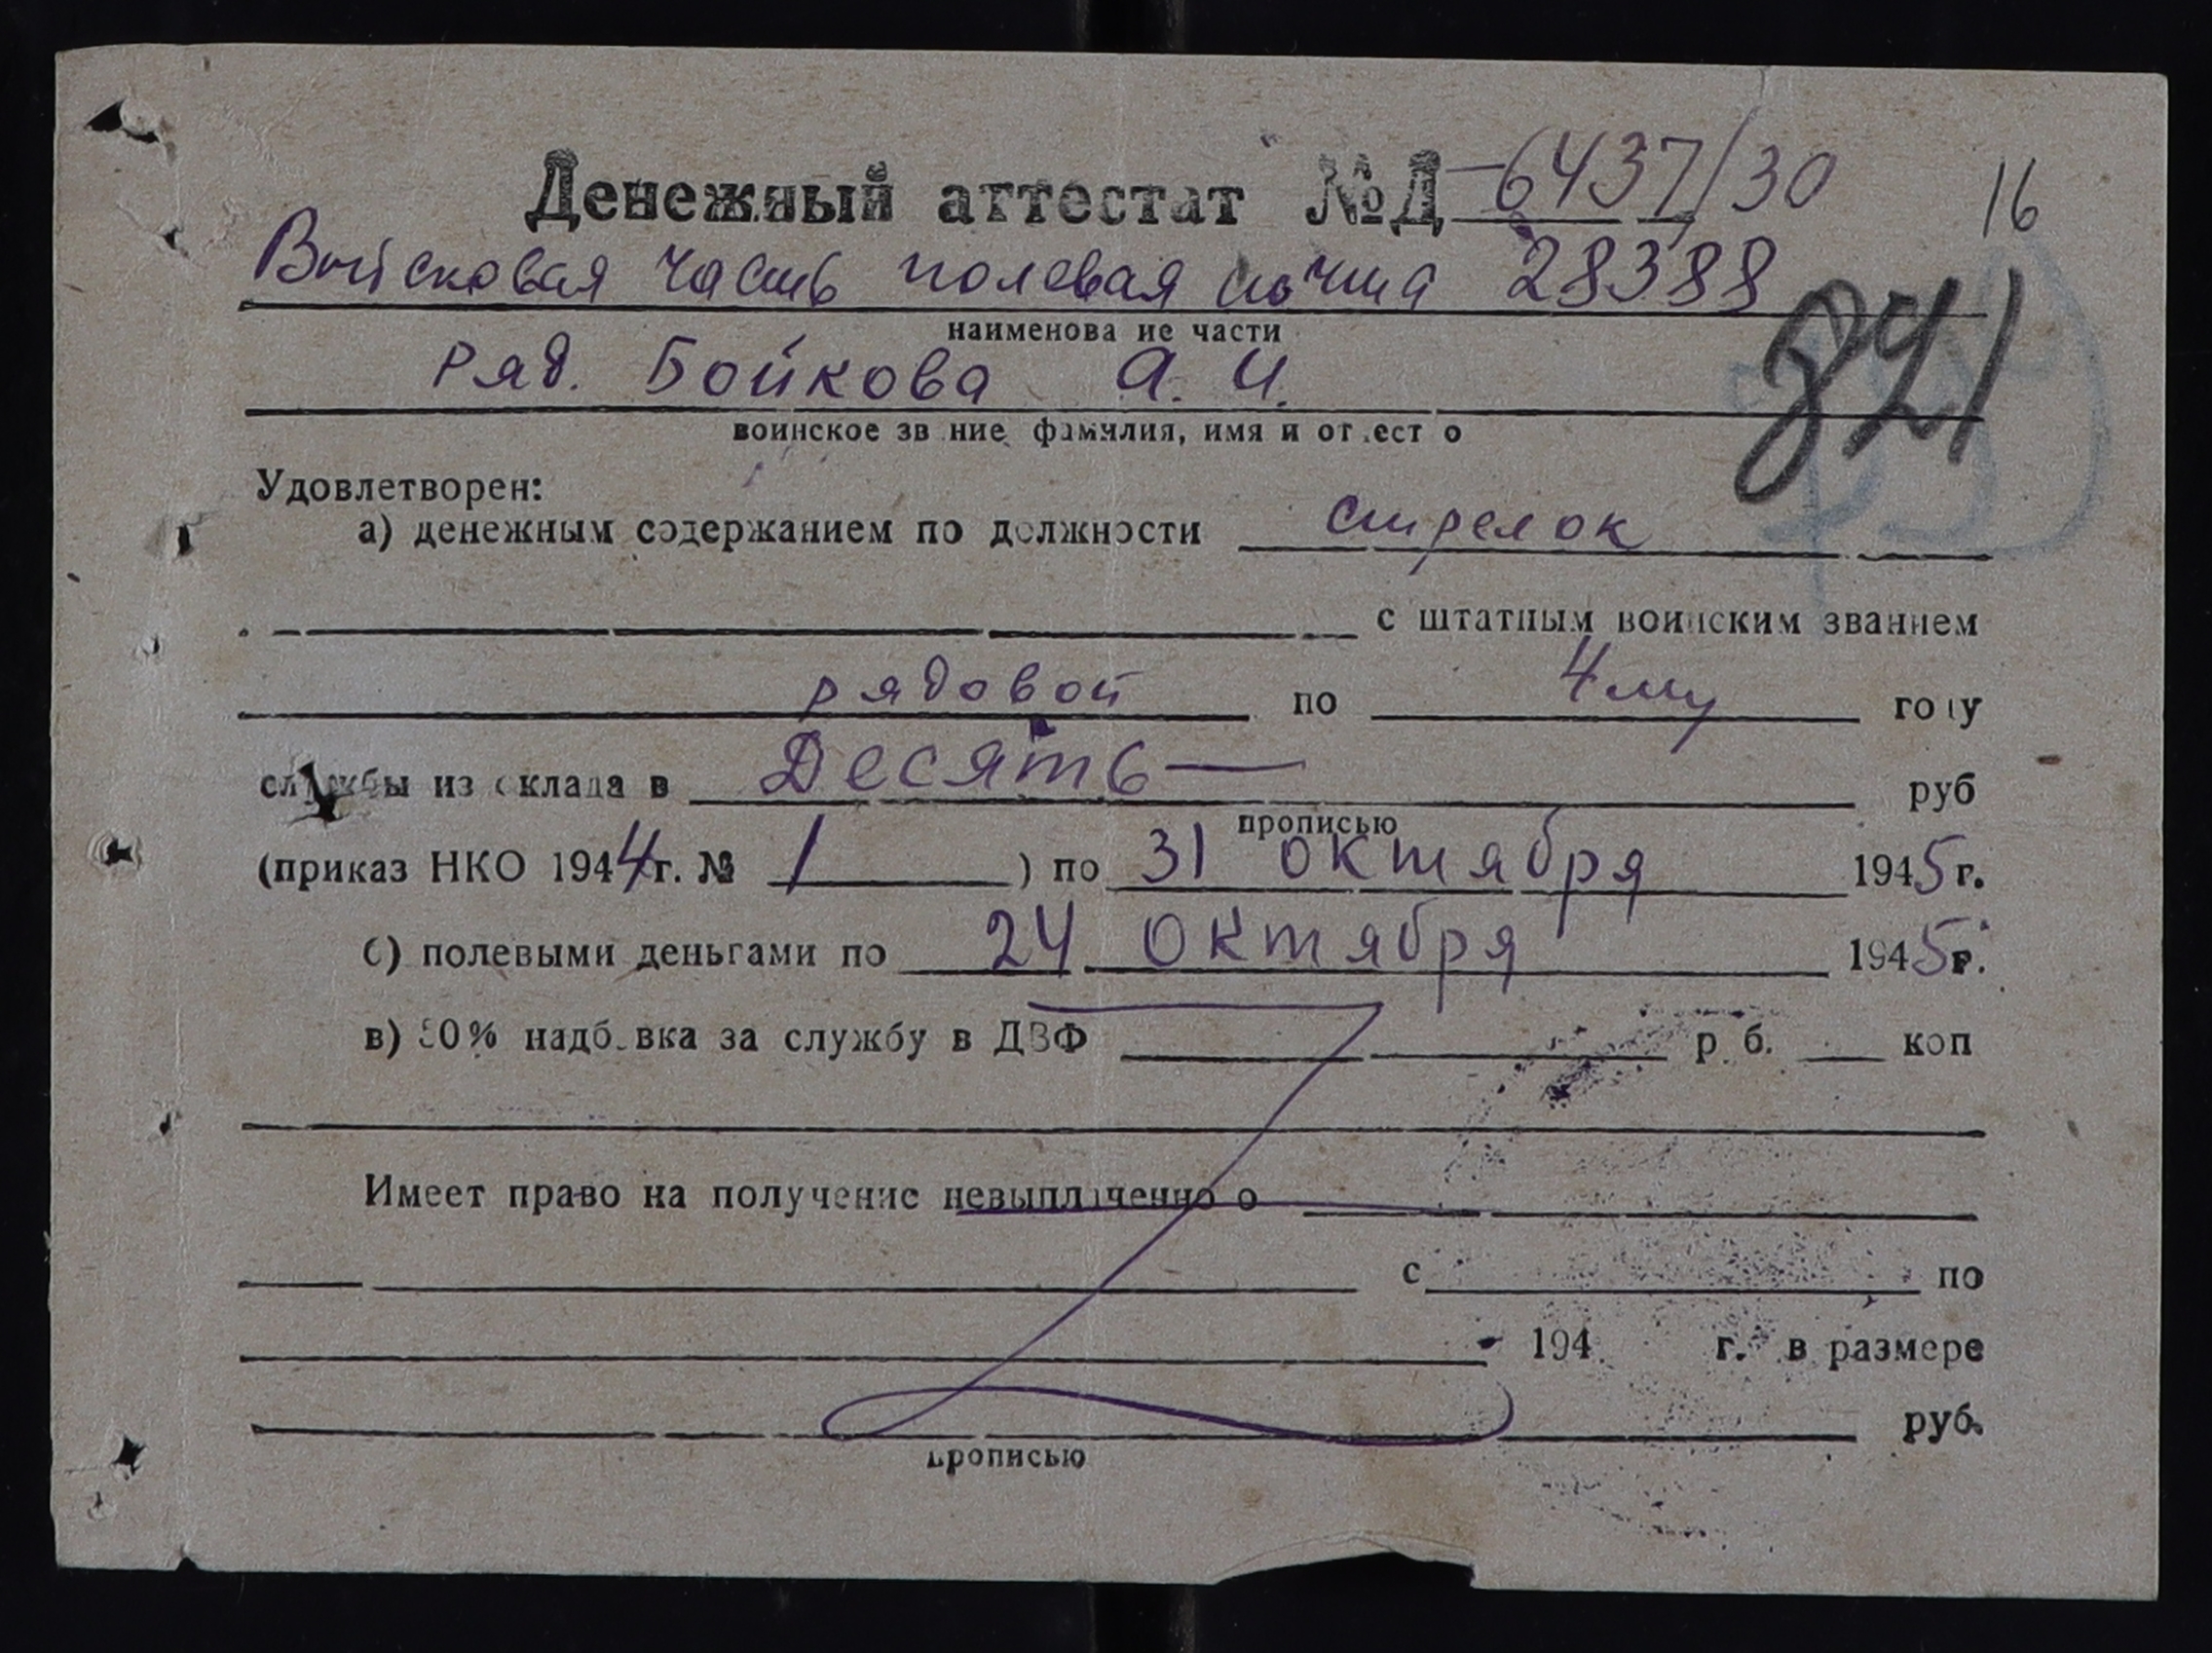 Денежный аттестат №Д-6437/30
16
Войсковая часть полевая почта 28388
наименова ие части
821
ряд. Бойкова А. И.
воинское зв ние фамилия, имя и от ест о
Удовлетворен:
а) денежным содержанием по должности стрелок
с штатным воинским званием
рядовой по 4му году
службы из склада в Десять— руб
прописью
(приказ НКО 1944г. № 1 ) по 31 октября 1945г.
б) полевыми деньгами по 24 октября 1945г.
в) 50% надб вка за службу в ДВФ р б. коп
Имеет право на получение невыплаченно о
с по
194 г. в размере
руб.
прописью